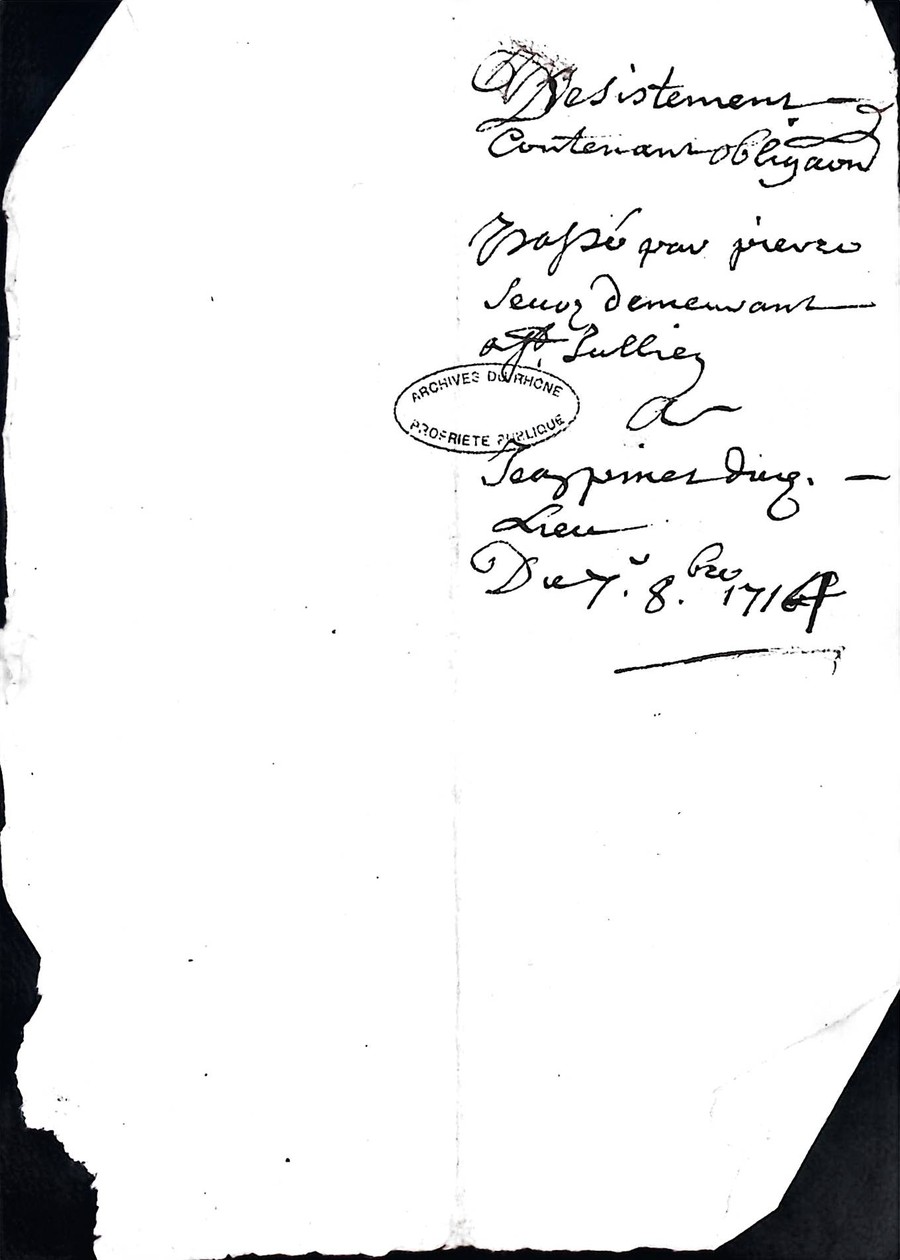 Desistement
Contenant obligaon
Passé par pierre
Senoz demeurant
a St. Jullien
ARCHIVES DU RHONE
PROPRIETE PUBLIQUE
A
Jean pinet dud.
Lieu
Du 7.e 8.bre 1714